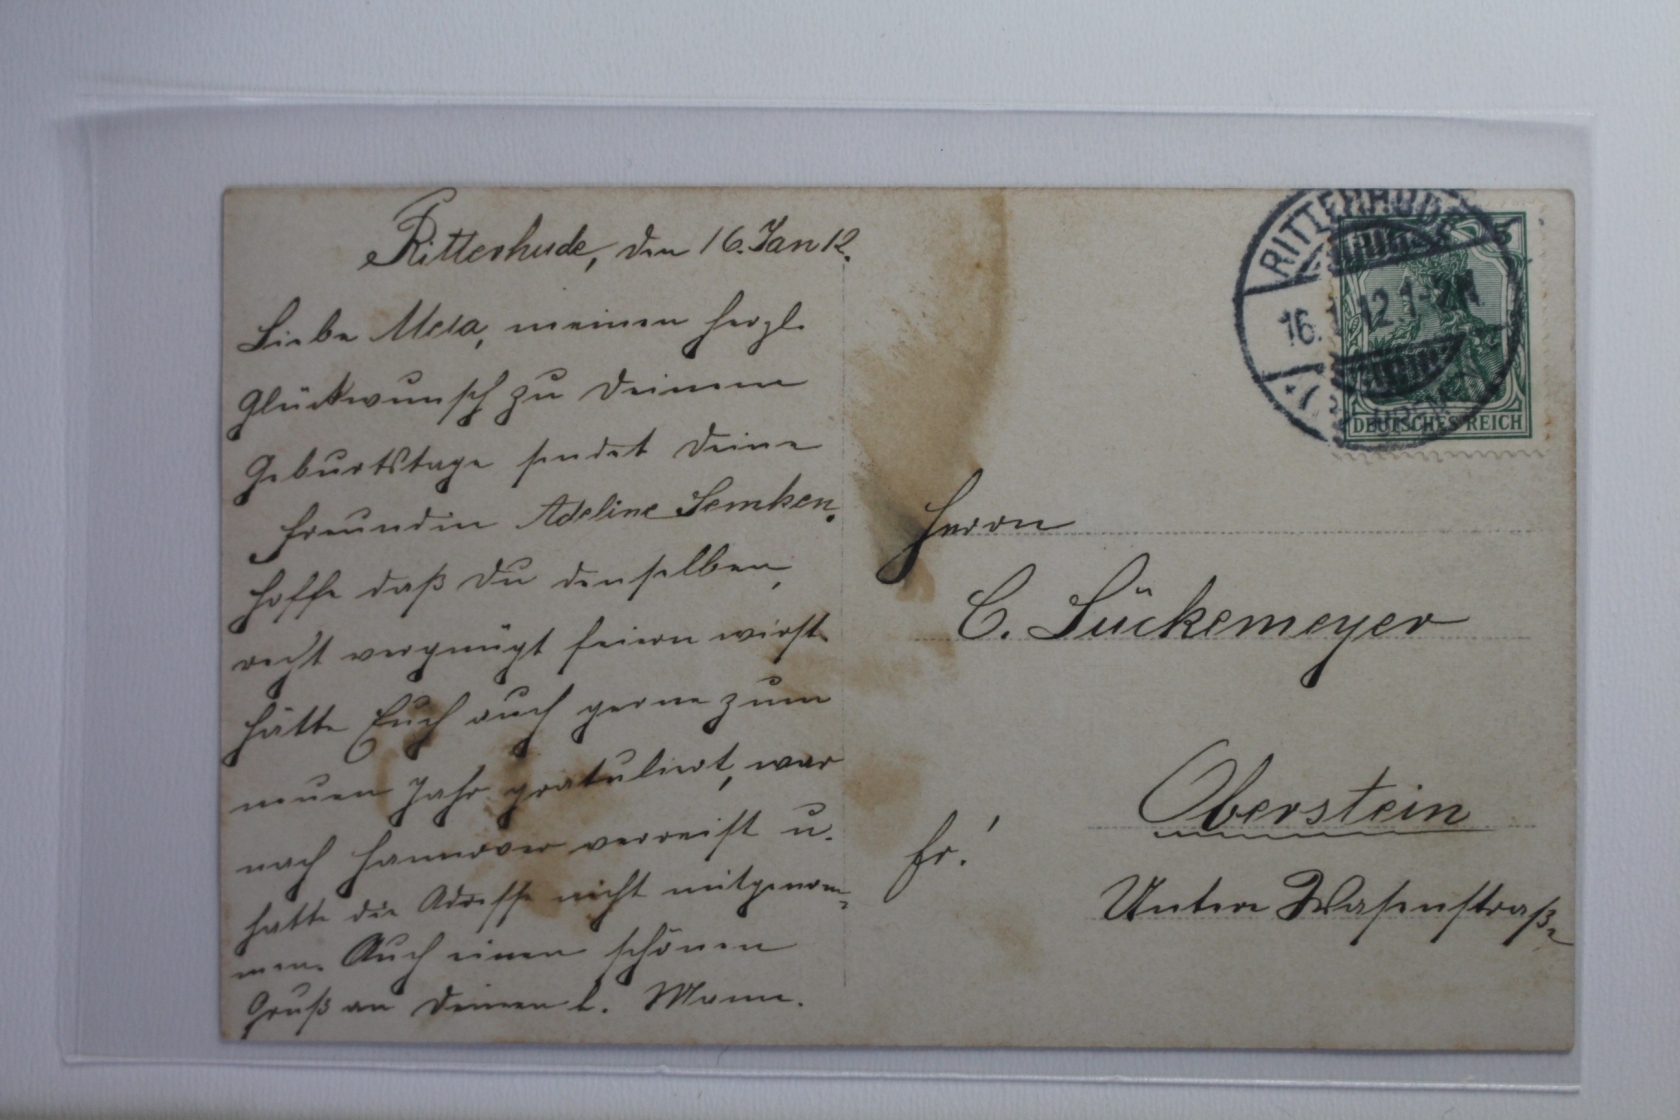 Ritterhude, den 16. Jan 12.
Liebe Meta, meinen herzl.
Glückwunsch zu Deinem
Geburtstage sendet Deine
Freundin Adeline Semken.
Hoffe daß Du denselben,
recht vergnügt feiern wirst.
Hätte Euch auch gerne zum
neuen Jahr gratuliert, war
nach Hannover verreist u.
hatte die Adresse nicht mitgenom-
men. Auch einen schönen
Gruß an Deinen l. Mann.
RITTERHUDE
16.1.12.1-2N
5
DEUTSCHES REICH
Herrn
C. Lückemeyer
Oberstein
fr!
Untere Wasenstraße